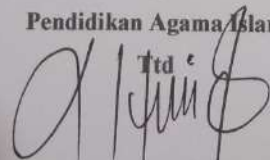 Pendidikan Agama Islam
Ttd